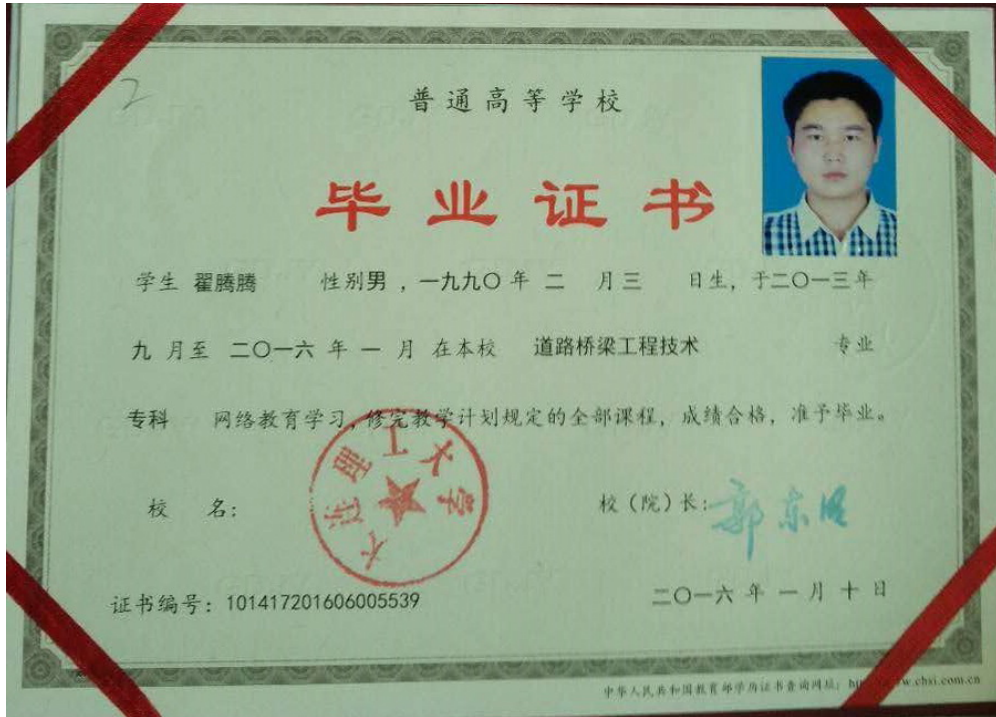 2
普通高等学校
毕业证书
学生 翟腾腾 性别男，一九九〇年 二 月三 日生，于二〇一三年
九 月至 二〇一六 年 一 月 在本校 道路桥梁工程技术 专业
专科 网络教育学习，修完教学计划规定的全部课程，成绩合格，准予毕业。
大连理工大学
校 名： 校（院）长：郭东明
证书编号：101417201606005539 二〇一六 年 一 月 十 日
中华人民共和国教育部学历证书查询网址：http w.chsi.com.cn